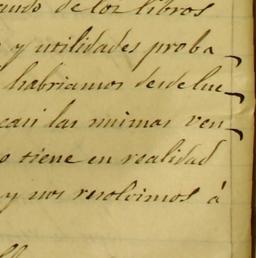 ando de los libros
y utilidades proba
habriamos desde lue
casi las mismas ven
o tiene en realidad
y nos resolvimos á